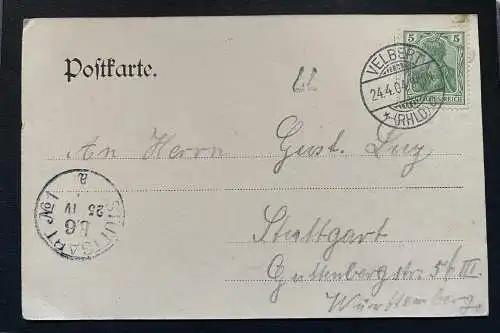 5 5
DEUTSCHES REICH
VELBERT
24.4.04
*(RHLD.)
Postkarte.
LL
An Herrn Gust. Luz
Stuttgart
Guttenbergstr. 5/III
Württemberg.
STUTTGART No 1
25 IV
a